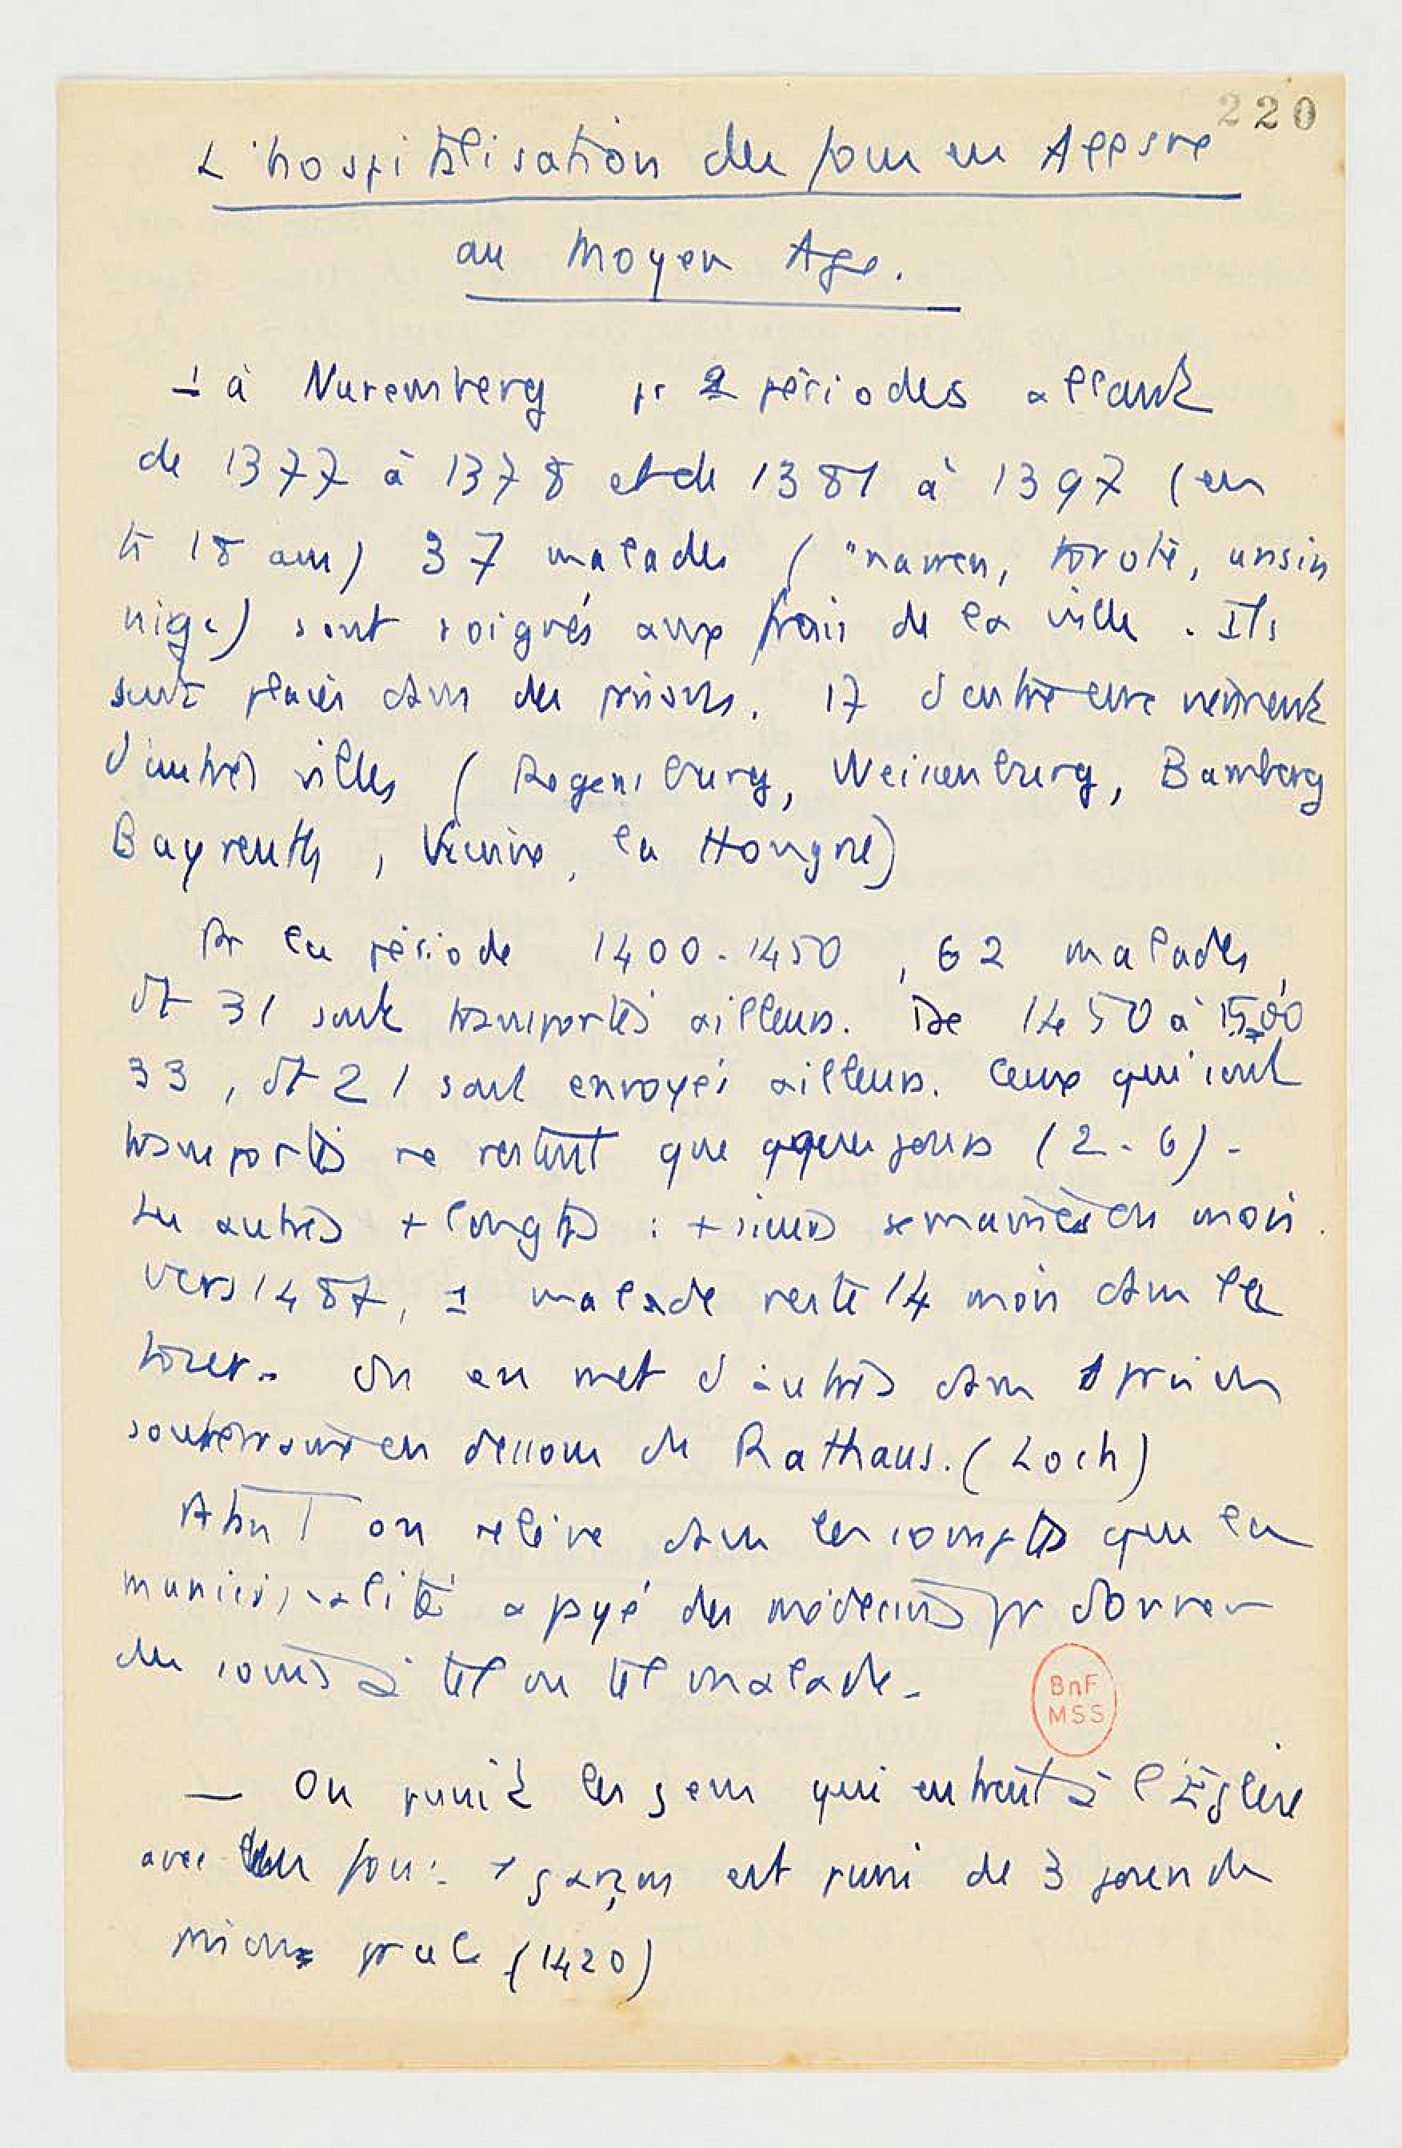 220
L'hospitalisation des fous en Allgne
au Moyen Age.
- à Nuremberg pr 2 périodes allant
de 1377 à 1378 et de 1381 à 1397 (en
tt 18 ans) 37 malades ("narren, unsin
nige) sont soignés aux frais de la ville. Ils
sont placés dans des prisons. 17 d'entre eux viennent
d'autres villes (Regensburg, Weissenburg, Bamberg
Bayreuth, Vienne, la Hongrie)
Pr la période 1400-1450, 62 malades,
dt 31 sont transportés ailleurs. De 1450 à 1500
33, dt 21 sont envoyés ailleurs. Ceux qui sont
transportés ne restent que qques jours (2-6) -
Les autres + longtps : + sieurs semaines ou mois.
vers 1487, 1 malade reste 14 mois dans la
tour. On en met d'autres dans 1 prison
souterraine en dessous du Rathaus. (Loch)
on relève dans les comptes que la
municipalité a payé des médecins pr donner
des soins à tel ou tel malade -
BnF
MSS
- On punit les gens qui entrent à l'Église
avec des fous : 1 garçon est puni de 3 jours de
prison pr cela (1420)